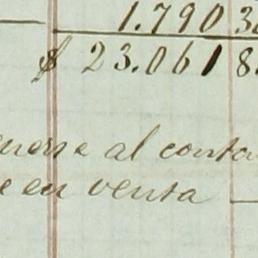 1.790 3
$ 23.061 8
nerse al conta
e en venta